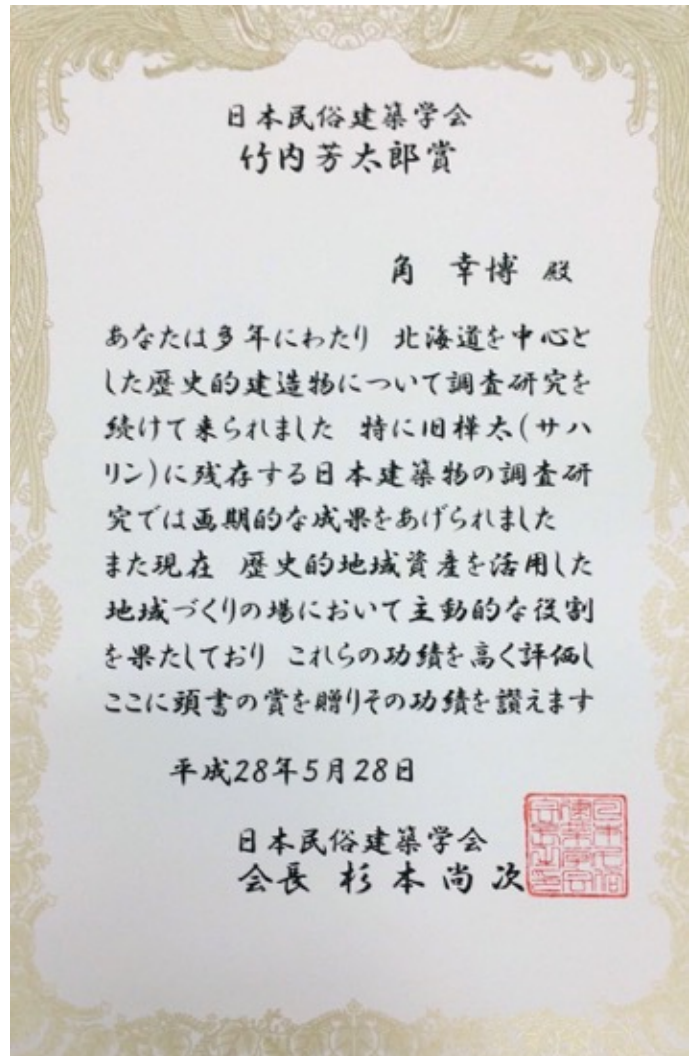 日本民俗建築学会
竹内芳太郎賞
角 幸博 殿
あなたは多年にわたり 北海道を中心と
した歴史的建造物について調査研究を
続けて来られました 特に旧樺太(サハ
リン)に残存する日本建築物の調査研
究では画期的な成果をあげられました
また現在 歴史的地域資産を活用した
地域づくりの場において主動的な役割
を果たしており これらの功績を高く評価し
ここに頭書の賞を贈りその功績を讃えます
平成28年5月28日
日本民俗建築学会
会長 杉本尚次